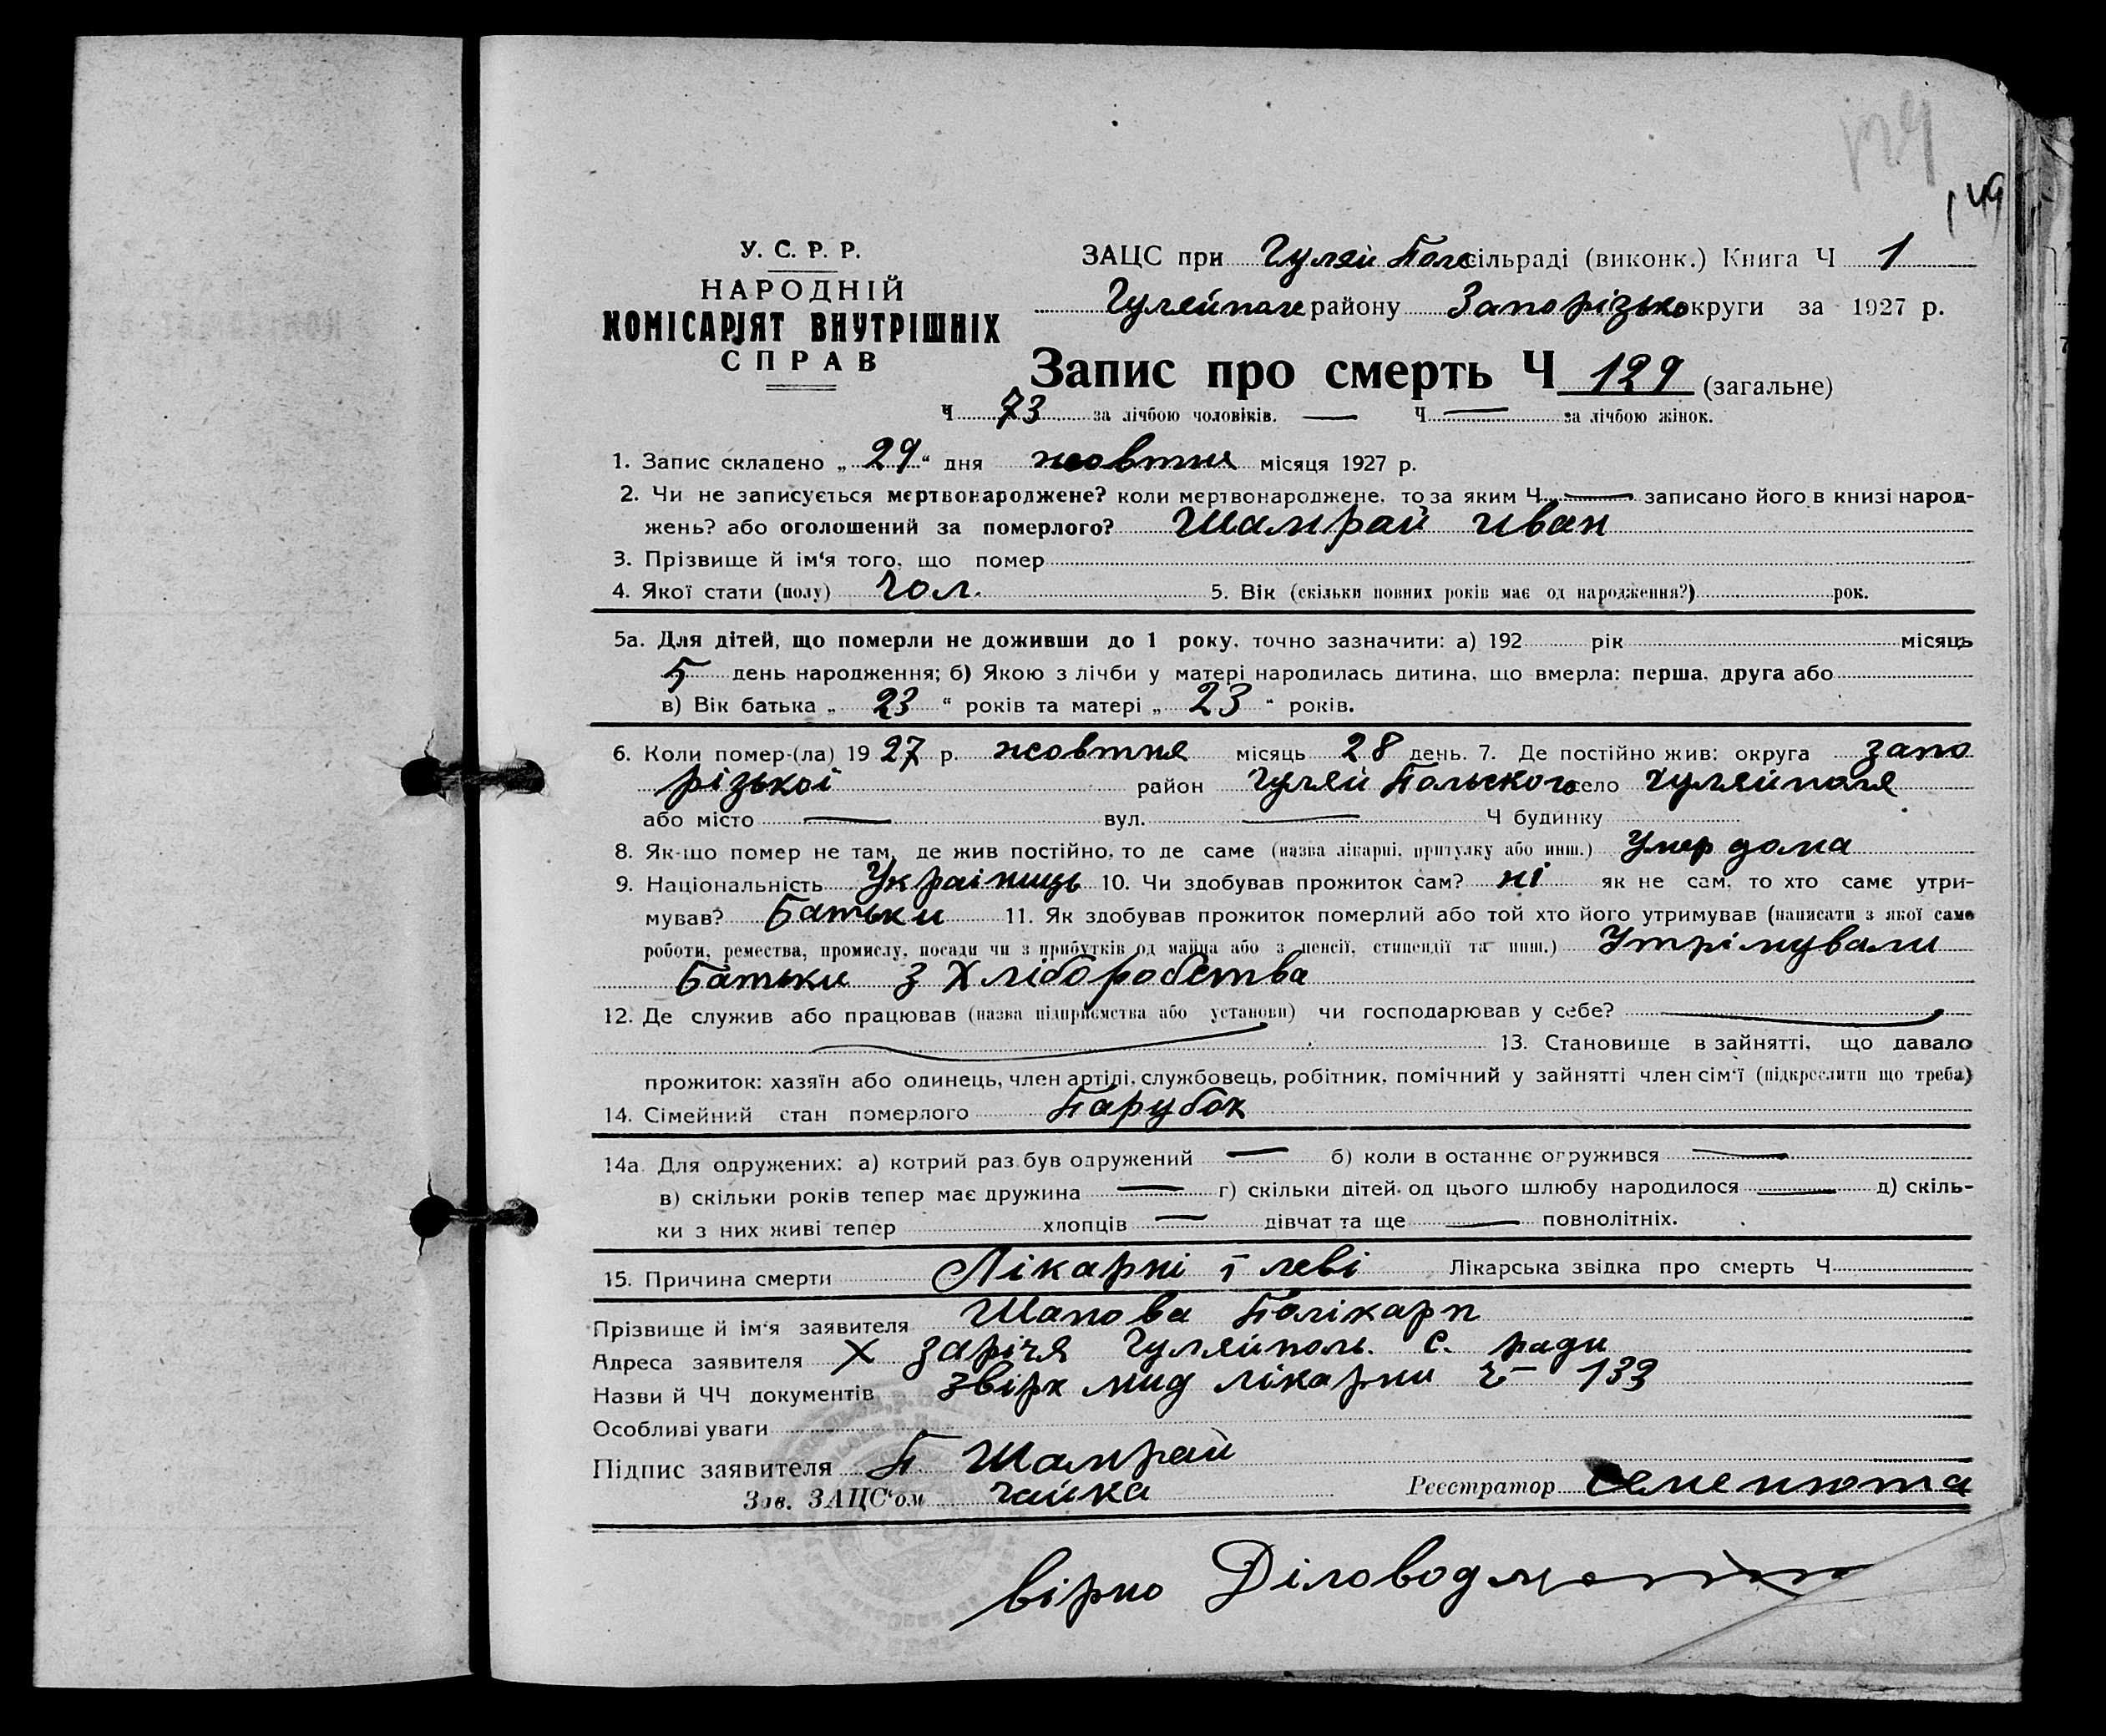 129
149
У. С. Р. Р.
НАРОДНІЙ
КОМІСАРІЯТ ВНУТРІШНІХ
СПРАВ
ЗАЦС при Гуляй Поле сільраді (виконк.) Книга Ч 1
Гуляйполе району Запорізько округи за 1927 р.
Запис про смерть Ч 129 (загальне)
Ч 73 за лічбою чоловіків. — Ч — за лічбою жінок.
1. Запис складено „ 29 “ дня жовтня місяця 1927 р.
2. Чи не записується мертвонароджене? коли мертвонароджене, то за яким Ч — записано його в книзі народ-
жень? або оголошений за померлого? Шамрай Иван
3. Прізвище й ім‘я того, що помер
4. Якої стати (полу) чол. 5. Вік (скільки повних років має од народження?) рок.
5а. Для дітей, що померли не доживши до 1 року, точно зазначити: а) 192 рік місяць
5 день народження; б) Якою з лічби у матері народилась дитина, що вмерла: перша, друга або
в) Вік батька „ 23 “ років та матері „ 23 “ років.
6. Коли помер-(ла) 19 27 р. жовтня місяць 28 день. 7. Де постійно жив: округа запо
різької район Гуляй Польского село Гуляйполя
або місто — вул. — Ч будинку
8. Як-що помер не там, де жив постійно, то де саме (назва лікарні, притулку або инш.) Умер дома
9. Національність Українць 10. Чи здобував прожиток сам? ні як не сам, то хто саме утри-
мував? Батьки 11. Як здобував прожиток померлий або той хто його утримував (написати з якої саме
роботи, ремества, промислу, посади чи з прибутків од майна або з пенсії, стипендії та инш.) Утрімували
Батьки з Хліборобства
12. Де служив або працював (назва підприємства або установи) чи господарював у себе? —
— 13. Становище в зайнятті, що давало
прожиток: хазяїн або одинець, член артілі, службовець, робітник, помічний у зайнятті член сім‘ї (підкреслити що треба)
14. Сімейний стан померлого Парубок
14а Для одружених: а) котрий раз був одружений — б) коли в останнє огружився —
в) скільки років тепер має дружина — г) скільки дітей од цього шлюбу народилося — д) скіль-
ки з них живі тепер хлопців — дівчат та ще — повнолітніх.
15. Причина смерти Лікарні Лікарська звідка про смерть Ч
Прізвище й ім‘я заявителя Полікарп
Адреса заявителя X зарічя Гуляйполь. С. ради
Назви й ЧЧ документів лікарни ч— 133
Особливі уваги
Підпис заявителя П Шамрай
Зав. ЗАЦС‘ом Чайка Реєстратор Семенюта
вірно Діловод